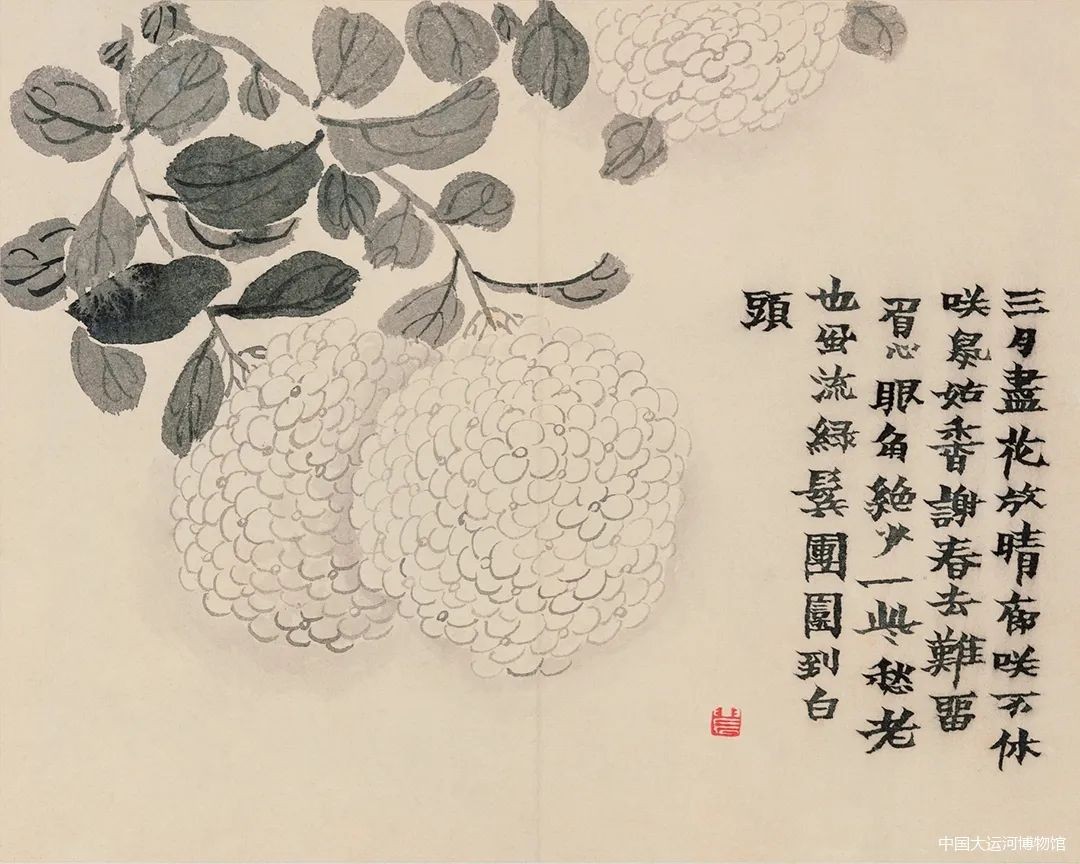 三月盡花放晴咲不休
咲姑香謝春去難留
眉心眼角絕少一些愁老
也風流綠鬢團圓到白
頭
中国大运河博物馆